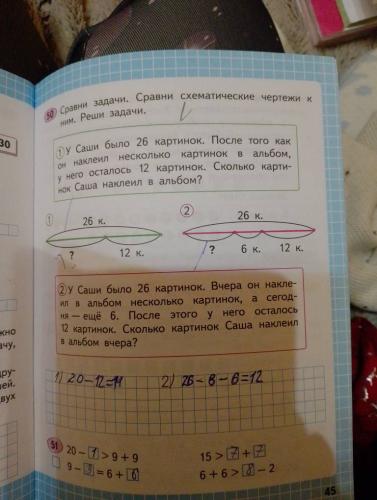 50 Сравни задачи. Сравни схематические чертежи к
ним. Реши задачи.
1 У Саши было 26 картинок. После того как
он наклеил несколько картинок в альбом,
у него осталось 12 картинок. Сколько карти-
нок Саша наклеил в альбом?
1 26 к.
? 12 к.
2 26 к.
? 6 к. 12 к.
2 У Саши было 26 картинок. Вчера он накле-
ил в альбом несколько картинок, а сегод-
ня — ещё 6. После этого у него осталось
12 картинок. Сколько картинок Саша наклеил
в альбом вчера?
1) 20-12=14 2) 26-8-6=12
51 20 - 1 > 9 + 9 15 > 7 + 7
9 - 3 = 6 + 6 6 + 6 > 8 - 2
45
30
жно
ачу,
дру-
лей.
двух